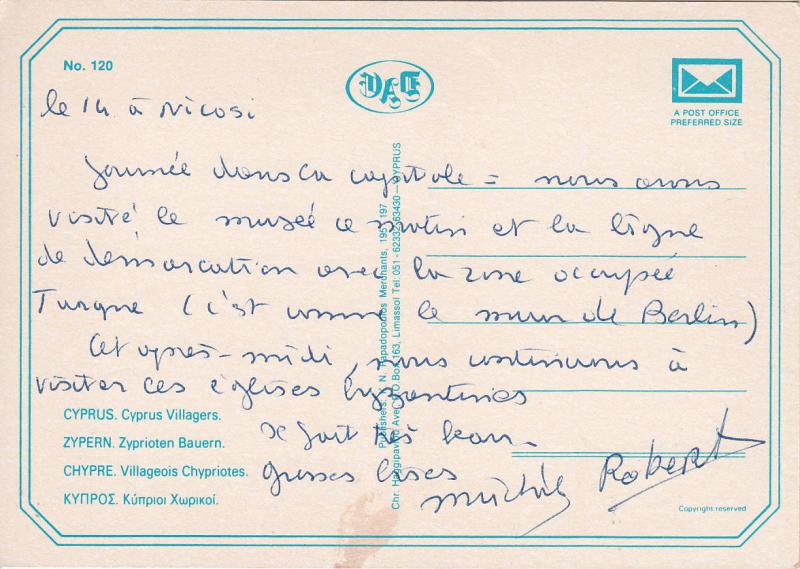 No. 120
DAE
A POST OFFICE
PREFERRED SIZE
le 14 à Nicosi
Journée dans la capitale = nous avons
visité le musée ce matin et la ligne
de démarcation avec la zone occupée
Turque (c'est comme le mur de Berlin)
Cet après-midi, nous continuons à
visiter ces églises byzantines
fait très beau.
Grosses bises
Michèle Robert
CYPRUS. Cyprus Villagers.
ZYPERN. Zyprioten Bauern.
CHYPRE. Villageois Chypriotes.
ΚΥΠΡΟΣ. Κύπριοι Χωρικοί.
Publishers: N. Papadopoulos Merchants, 195 197
Chr. Hadjipavlou Ave. P.O.Box 163, Limassol Tel: 051-62332 63430—CYPRUS
Copyright reserved